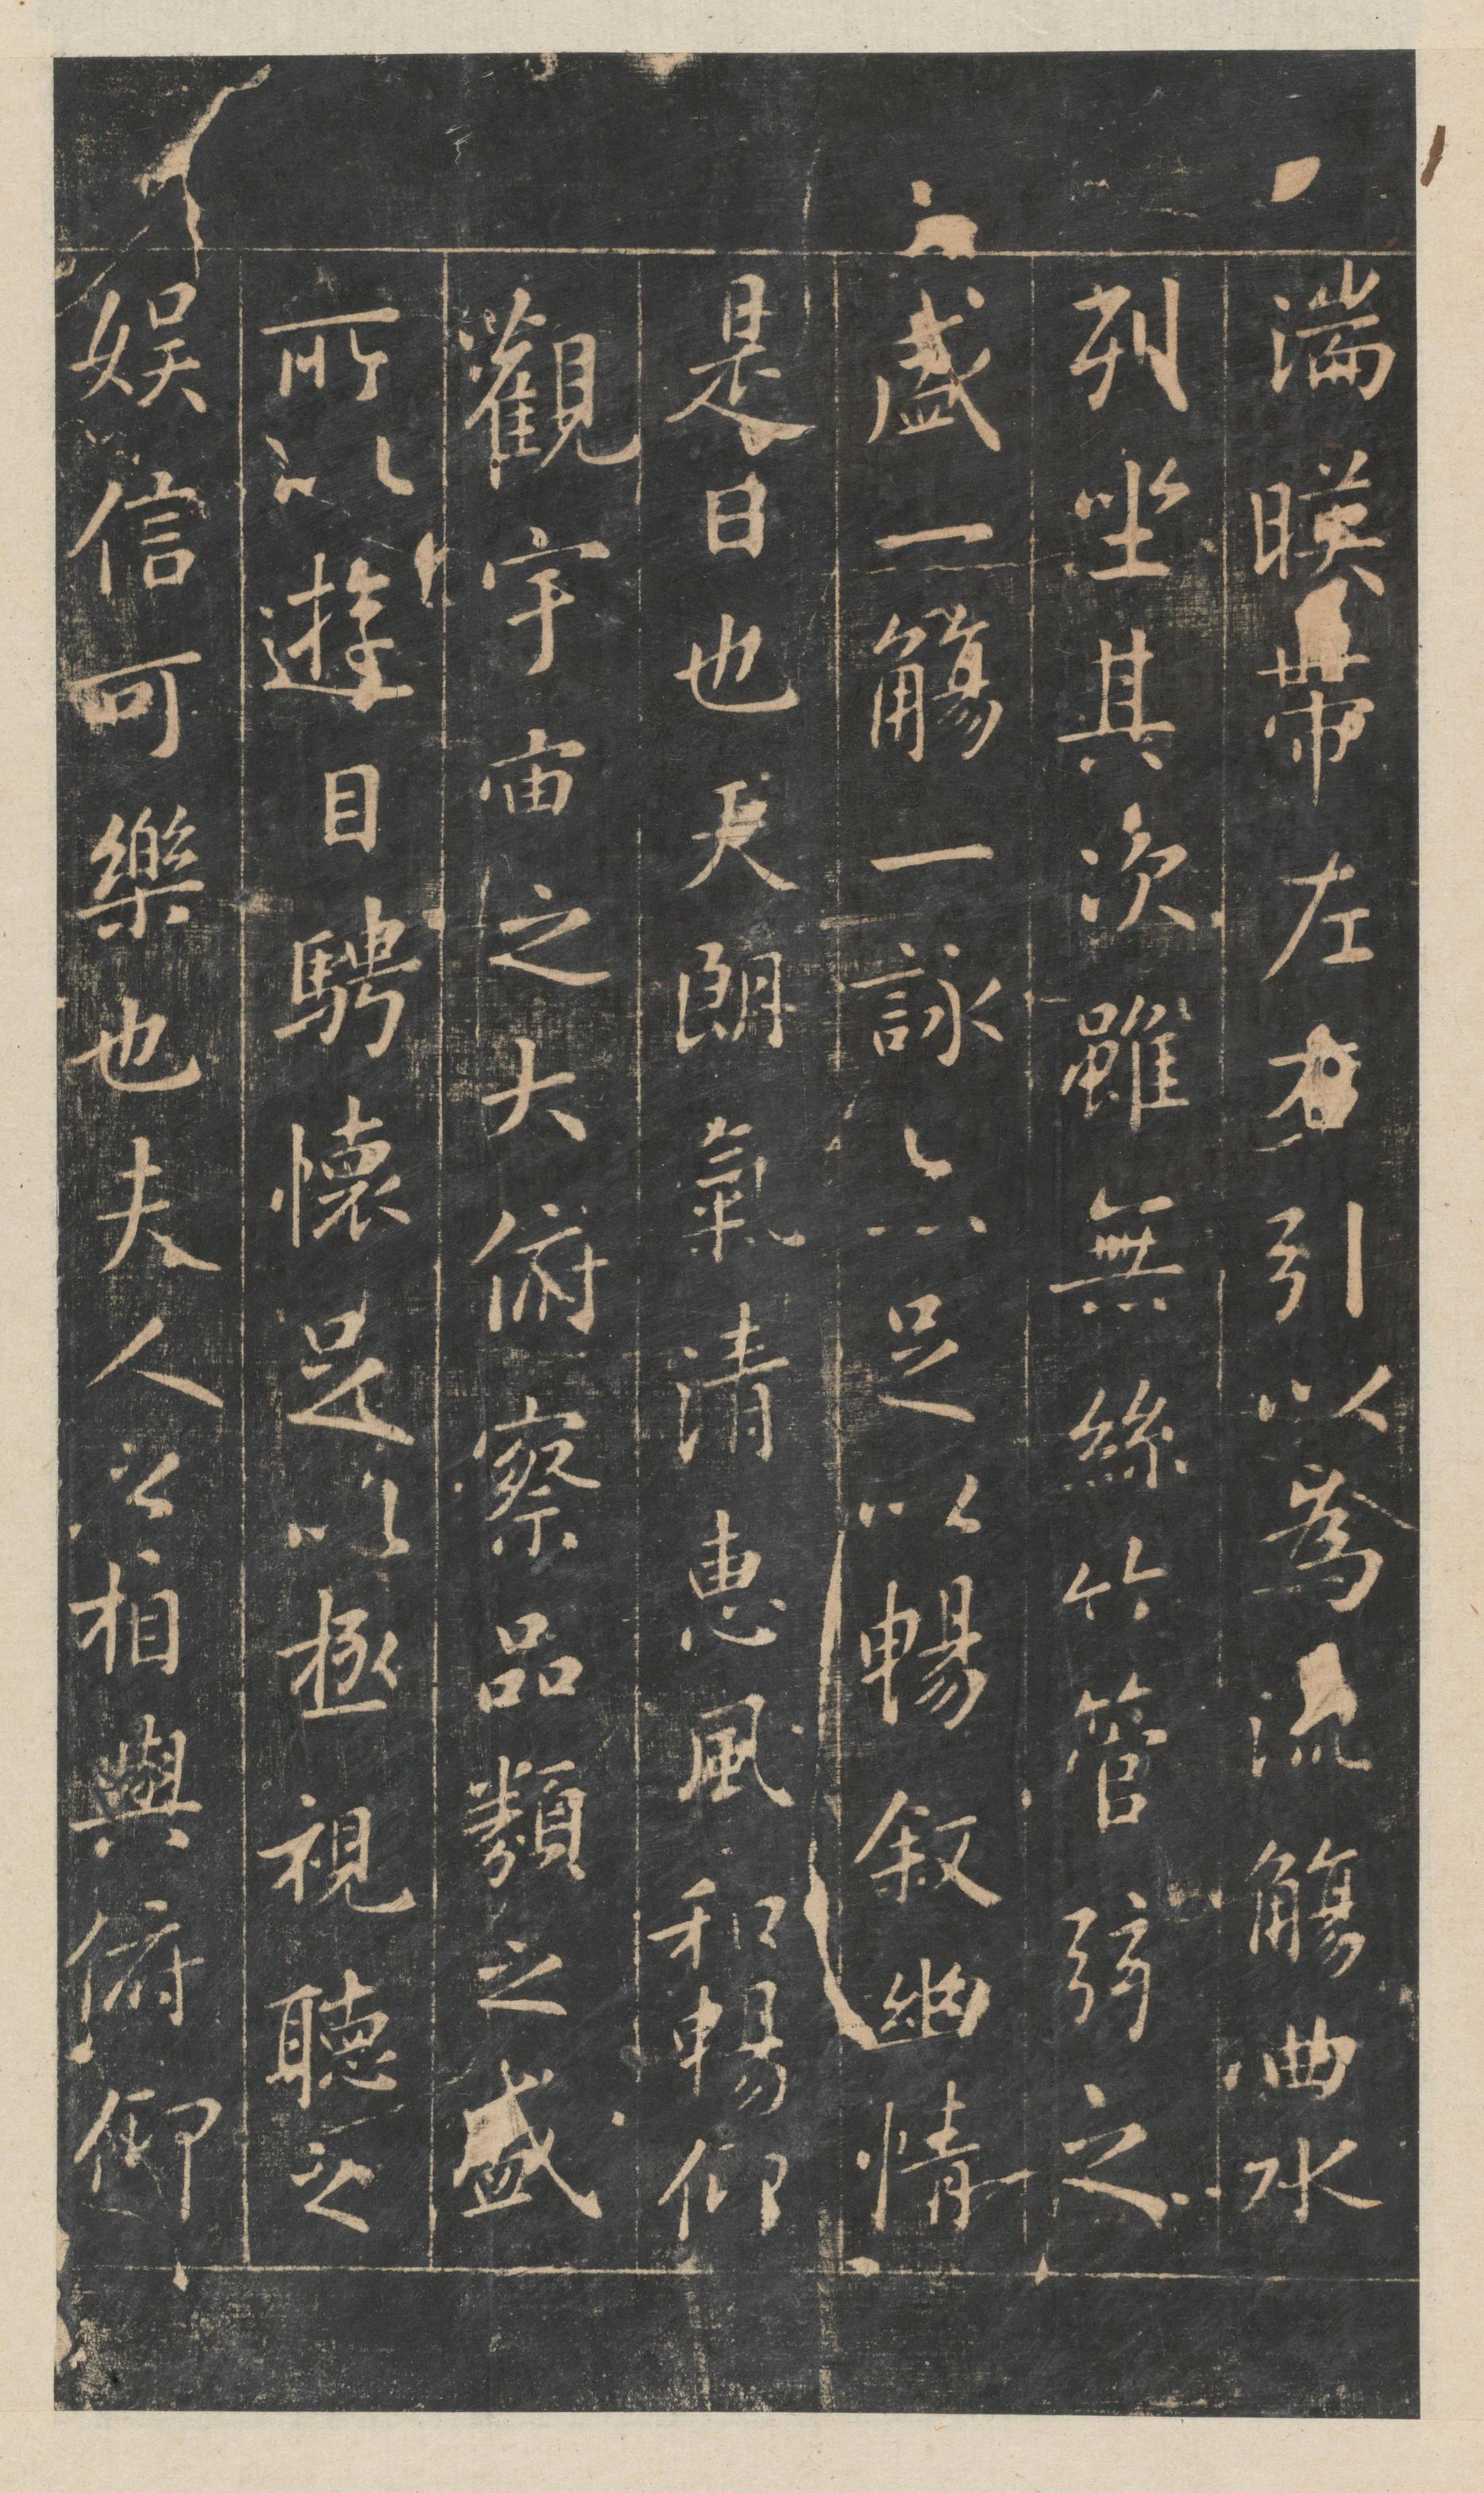 湍暎帶左右引以為流觴曲水
列坐其次雖無絲竹管弦之
盛一觴一詠亦足以暢敘幽情
是日也天朗氣清惠風和暢仰
觀宇宙之大俯察品類之盛
所以遊目騁懷足以極視聽之
娛信可樂也夫人之相與俯仰